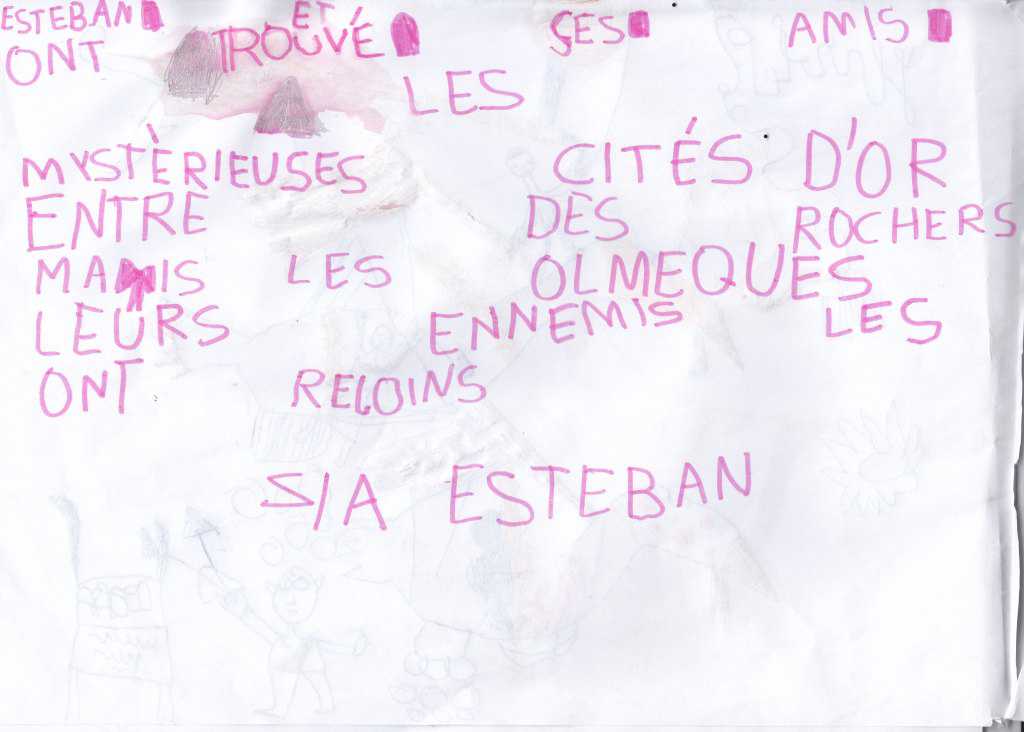 ESTEBAN ET SES AMIS
ONT TROUVÉ LES
MYSTÈRIEUSES CITÉS D'OR
ENTRE DES ROCHERS
MAIS LES OLMEQUES
LEURS ENNEMIS LES
ONT REJOINS
S/A ESTEBAN